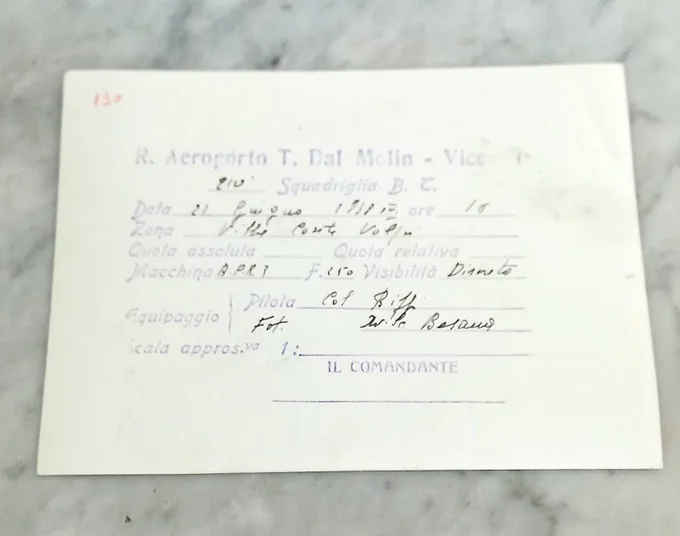 130
R. Aeroporto T. Dal Molin - Vice
210ª Squadriglia B. T.
Data 21 Giugno 1938 ore 16
Zona Villa Conte Volpi
Quota assoluta Quota relativa
Macchina A.P.R.3 F. 250 Visibilità Discreta
Equipaggio Pilota Col Biffi
Fot. Besana
Scala appros.va 1:
IL COMANDANTE